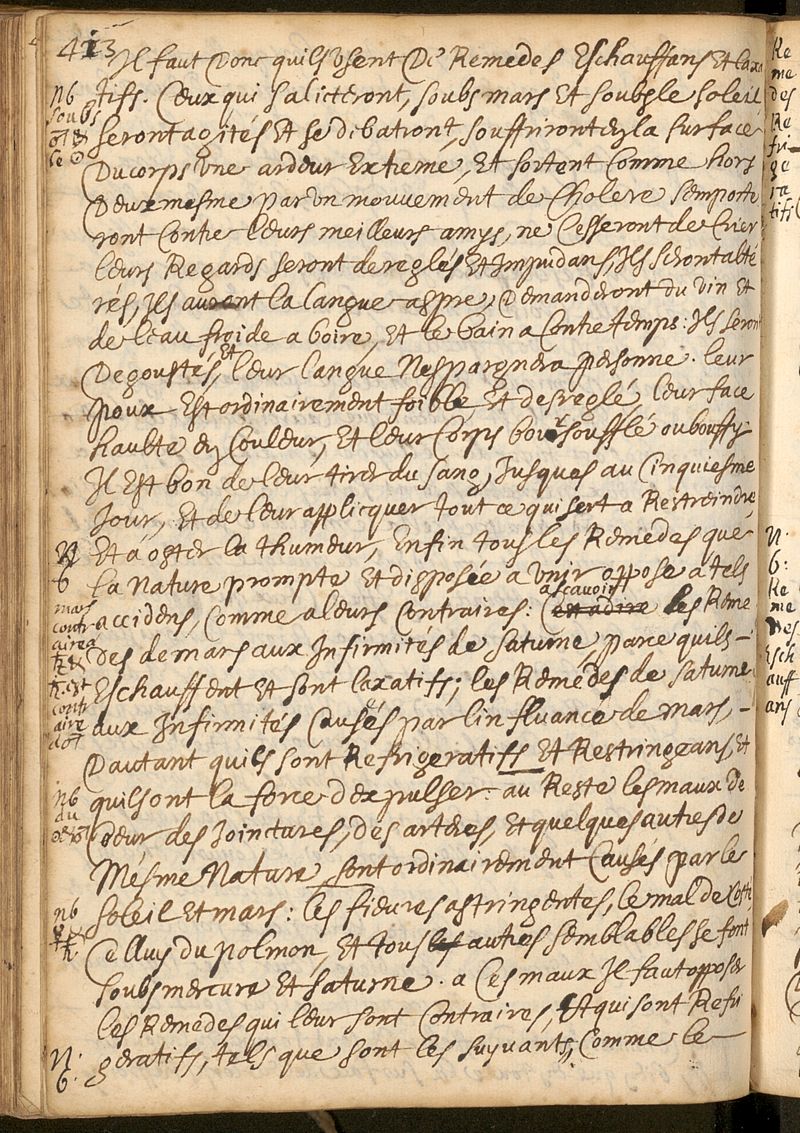 413 Il faut donc quils usent de Remedes Eschauffans Et laxa
tifs. Ceux qui saliteront, soubs mars Et soubs le soleil
seront agités Et se debatront, souffriront en la surface
Du corps une ardeur Extreme, Et sortent comme hors
Deux mesme par un mouvement de Cholere semporte
ront contre leurs meilleurs amys, ne cesseront de Crier
leurs Regards seront dereglés Et Impudans, Ils seront alté
rés, Ils auront la langue aspre, Demanderont du vin Et
de leau froide a boire, Et le bain a contre temps: Ils seront
Degoustés, Et leur langue Nespargnera personne. leur
poux Est ordinairement foible Et desreglé leur face
haulte en Couleur, Et leur Corps boursoufflé ou bouffy
Il Est bon de leur tirer du sang, Jusques au Cinquiesme
Jour, Et de leur applicquer tout ce qui sert a Restreindre
Et a oster la thumeur, Enfin tous les Remedes que
la Nature prompte Et disposée a unir oppose a tels
accidens, Comme a leurs Contraires: a scavoir les Reme
des de mars aux Infirmités de saturne, parce quils
Eschauffent Et sont laxatifs; les Remedes de saturne
aux Infirmités Causés par linfluance de mars,
Dautant quils sont Refrigeratifs Et Restringeans, Et
quils ont la force dexpulser: au Reste les maux de
Cœur des Jointures, des arteres, Et quelques autres de
Mésme Nature, sont ordinairement Causés par le
soleil Et mars: les fieures astringentes, le mal de Costé
Celluy du polmon, Et tous les autres semblables se font
soubs mercure Et saturne. a Ces maux Il faut opposer
les Remedes qui leur sont Contraires, Et qui sont Refri
geratifs, tels que sont les suyvants, Comme le
NB
soubs
♂ &
le ☉
N
B
mars
contr
aire a
♄ &
♄ est
contr
aire
a ♂
NB
du
☉ & ♂
NB
☿ &
♄
N.
B.
Re
me
des
Re
fri
ge
ra
tifs
N.
B:
Re
me
des
Esch
auff
ans